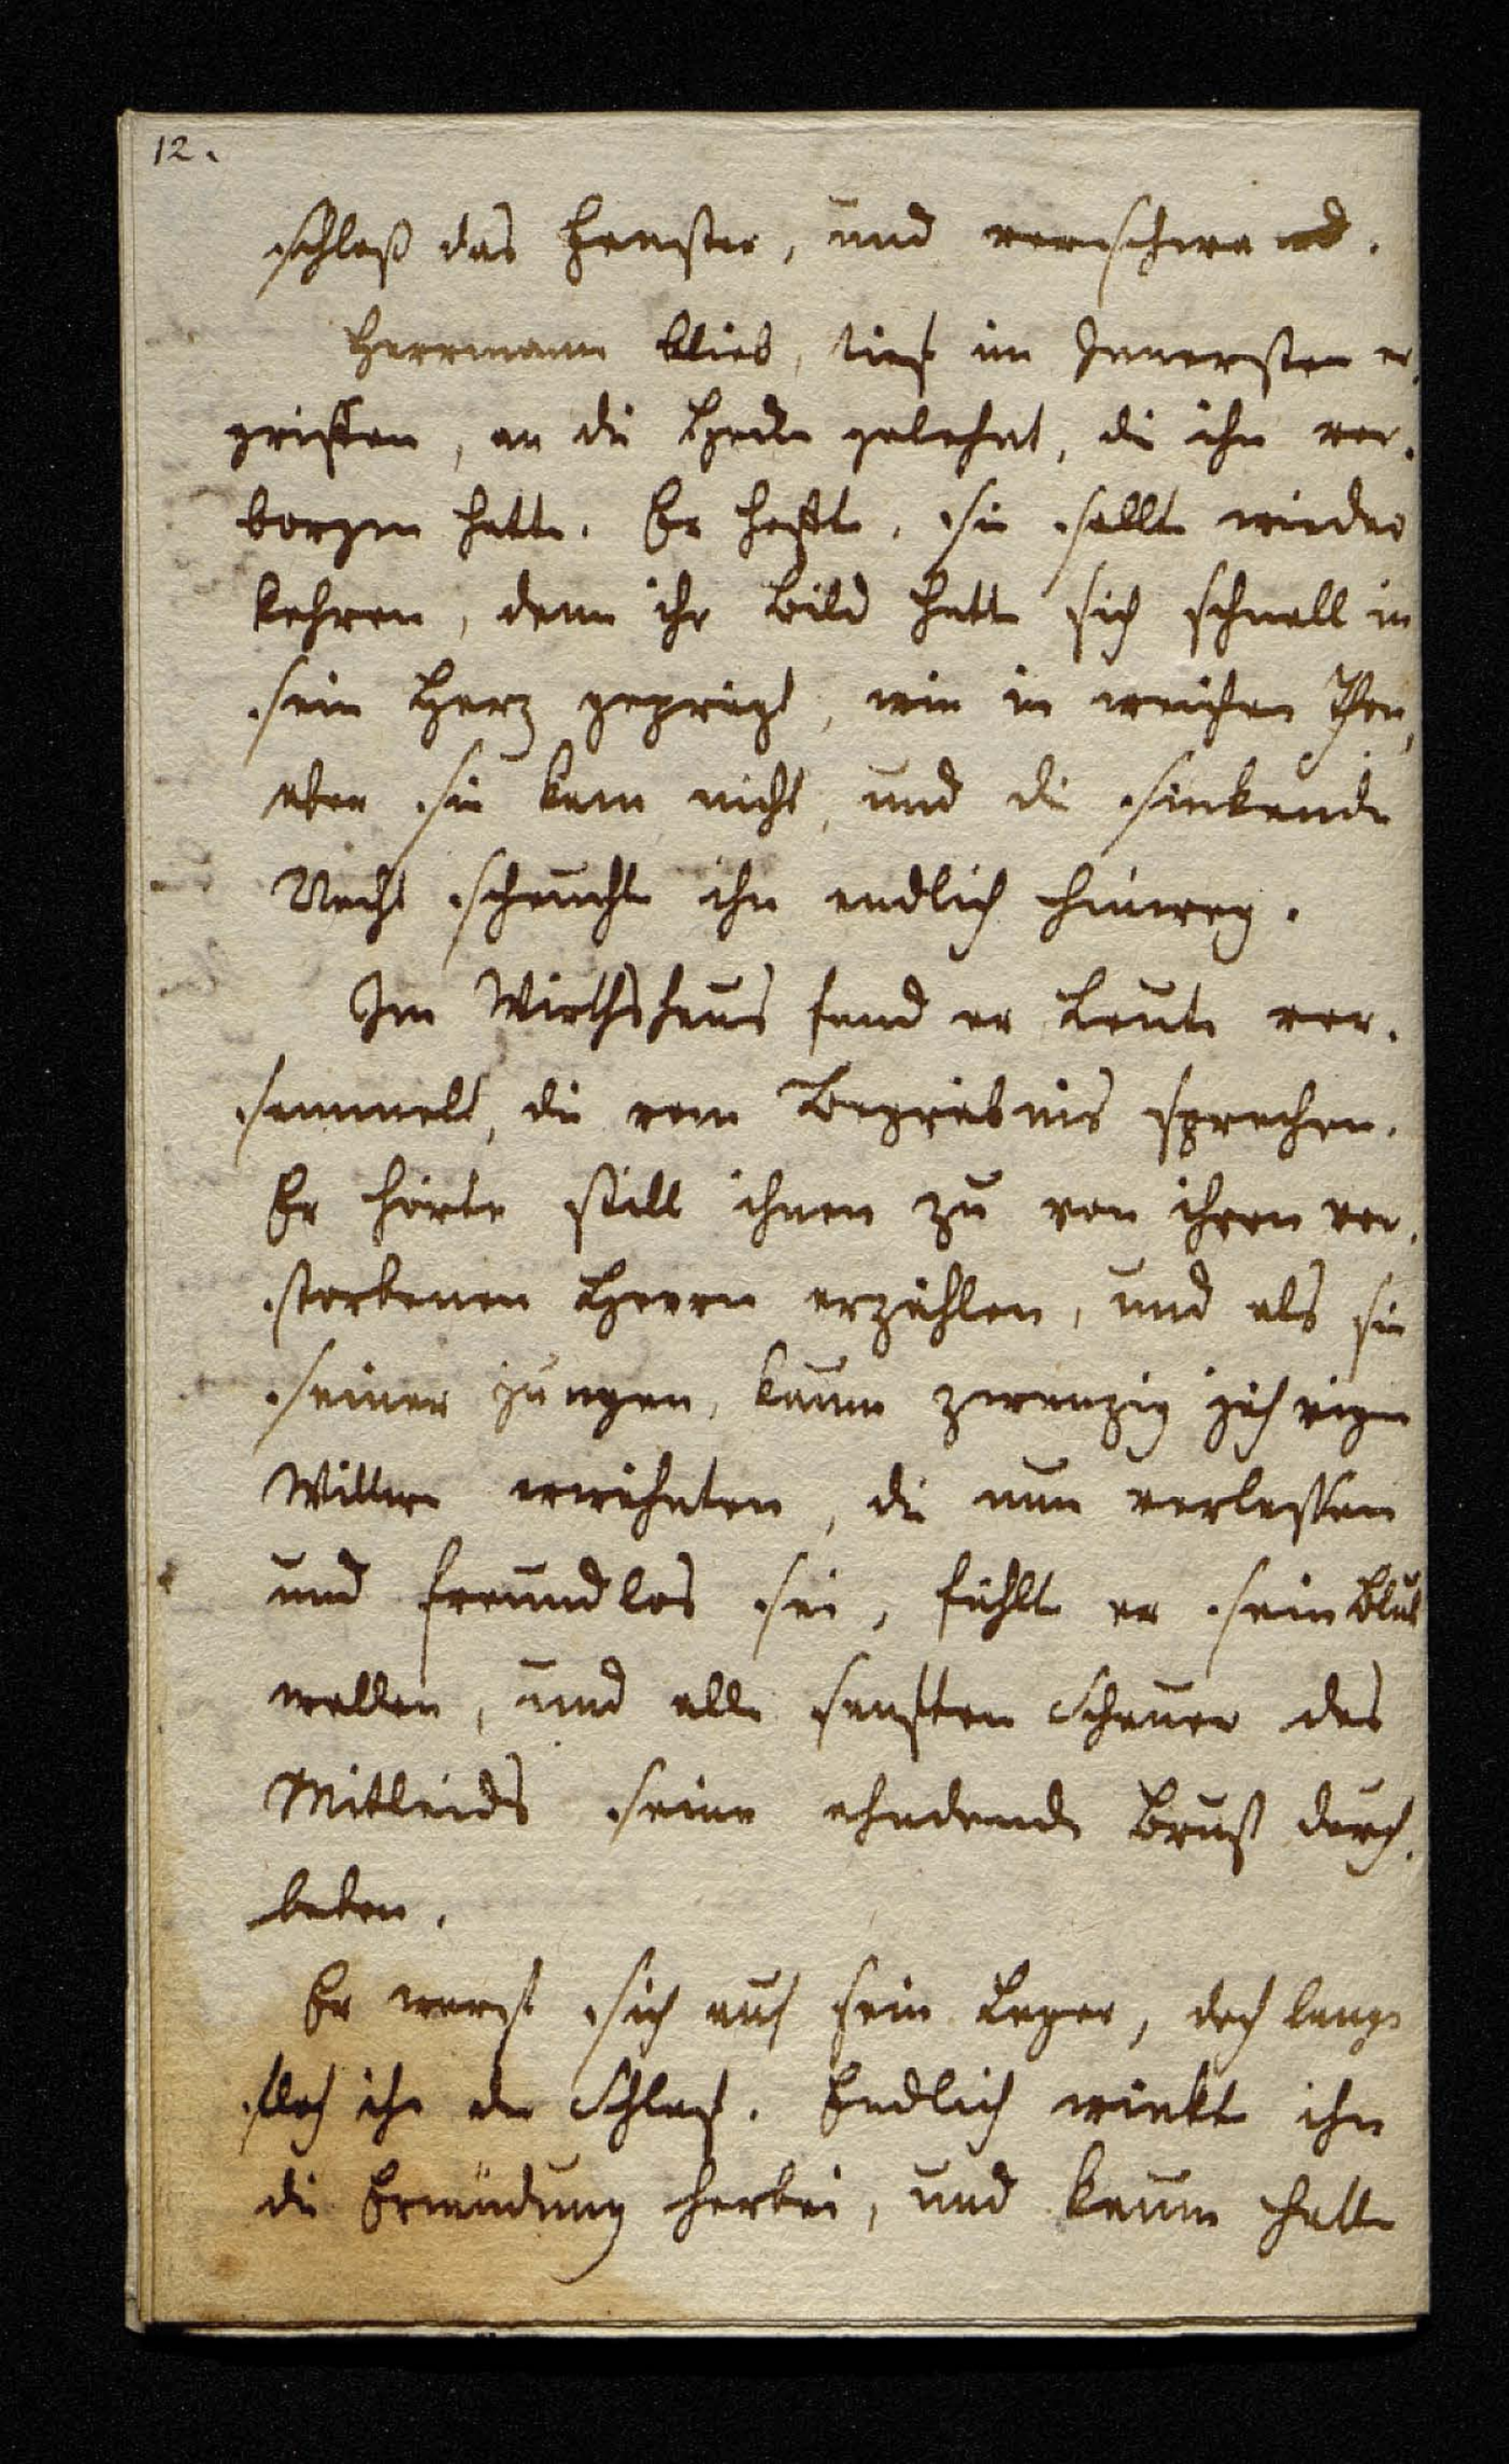 12.
schloß das Fenster, und verschwand.
Herrmann blieb, tief im Innersten er-
griffen, an die Hecke gelehnt, die ihn ver-
borgen hatte. Er hoffte, sie sollte wieder
kehren, denn ihr Bild hatte sich schnell in
sein Herz geprägt, wie in weichen Thon,
aber sie kam nicht, und die sinkende
Nacht scheuchte ihn endlich hinweg.
Im Wirthshaus fand er Leute ver-
sammelt, die vom Begräbnis sprachen.
Er hörte still ihnen zu von ihrem ver-
storbenen Herrn erzählen, und als sie
seiner jungen, kaum zwanzig jährigen
Wittwe erwähnten, die nun verlassen
und freundlos sei, fühlte er sein Blut
wallen, und alle sanften Schauer des
Mitleids seine ahndende Brust durch-
beben.
Er warf sich auf sein Lager, doch lange
floh ihn der Schlaf. Endlich winkte ihn
die Ermüdung herbei, und kaum hatte